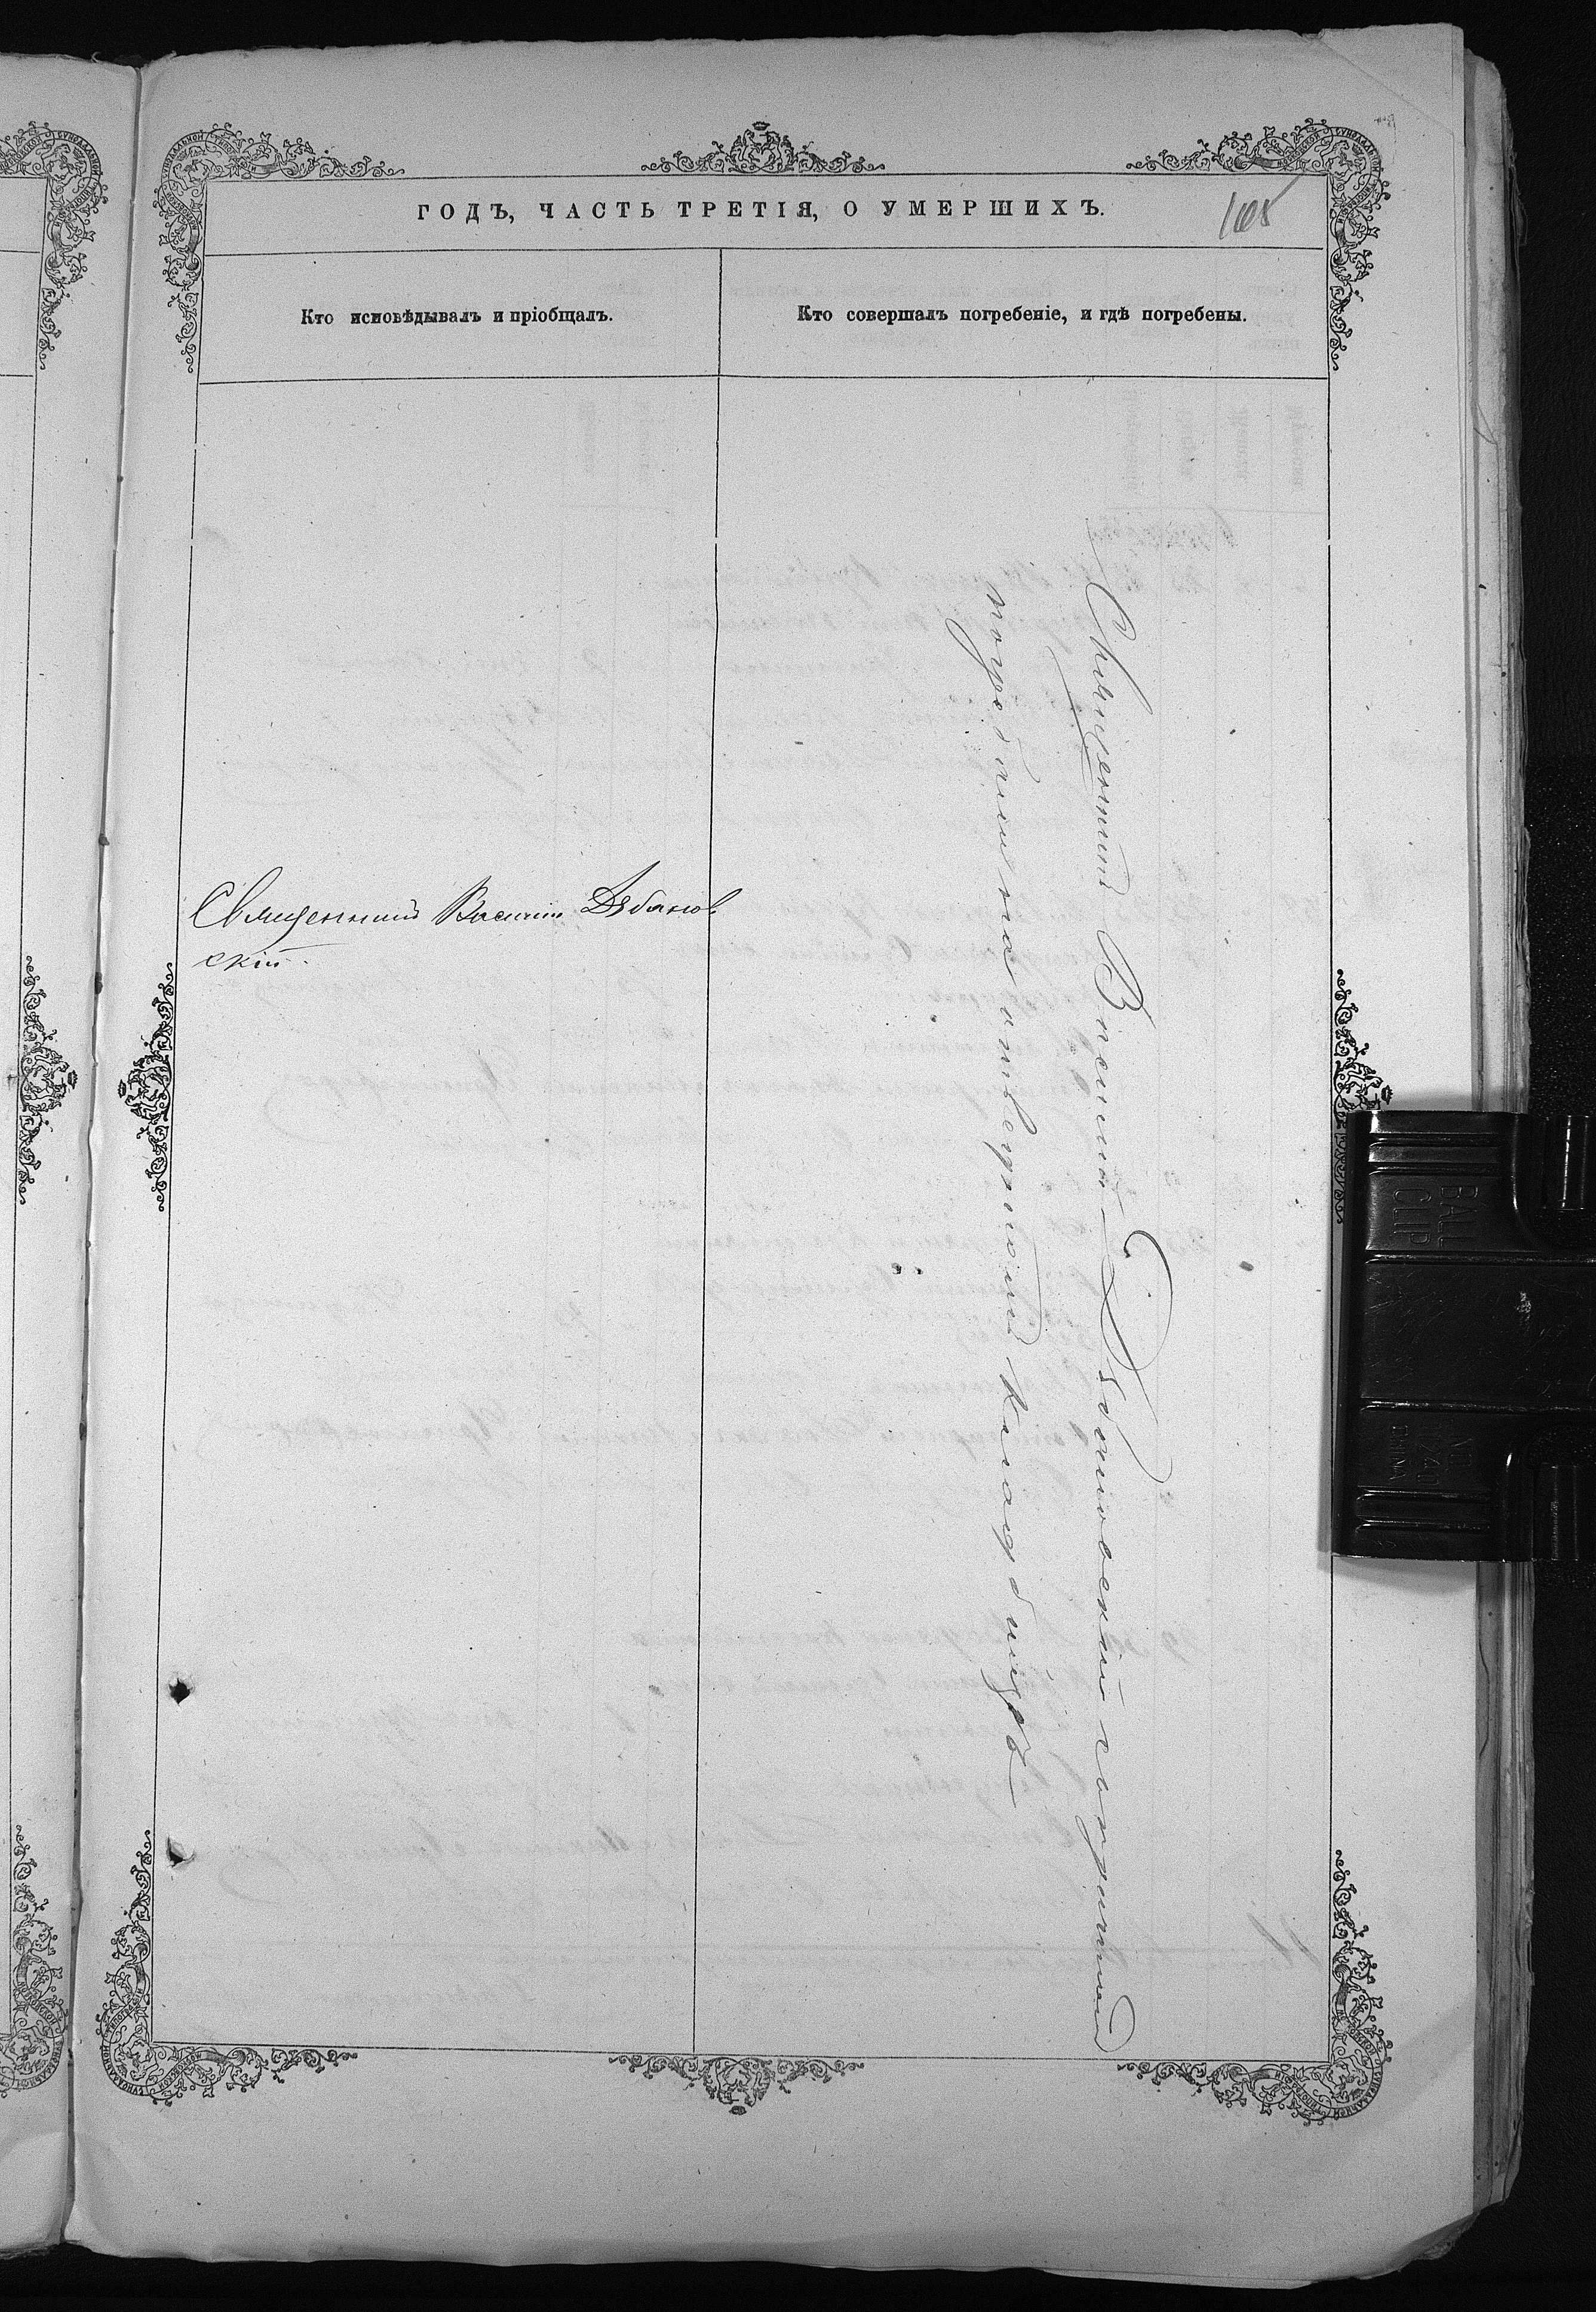 ГОДЪ, ЧАСТЬ ТРЕТІЯ, О УМЕРШИХЪ.
Кто исповѣдывалъ и пріобщалъ.
Кто совершалъ погребеніе, и гдѣ погребены.
Священникъ Василій Дѣбанов
скій
Священникъ Василій Дѣбановскій
погребены на кладбищѣ
BALL
CLIP
NO
240
CHINA